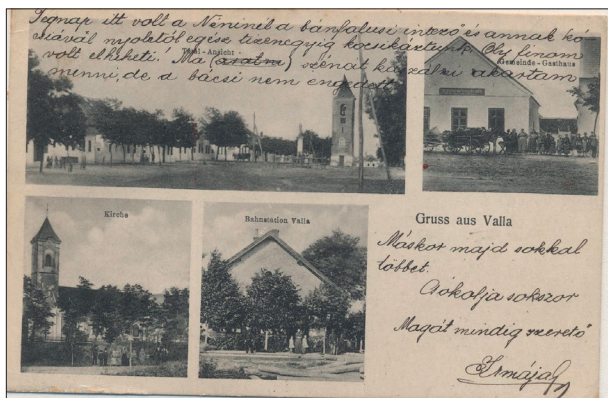 Tegnap itt volt a Néninél a bánfalusi intéző és annak ko
csijával nyolctól egész tizenegyig kocsikáztunk. Oly finom
volt elhiheti! Ma (aratni) szénát kaszálni akartam
menni, de a bácsi nem engedett.
Total-Ansicht
Gemeinde-Gasthaus
Kirche
Bahnstation Valla
Gruss aus Valla
Máskor majd sokkal
többet.
Csókolja sokszor
Magát mindig szerető
Irmája